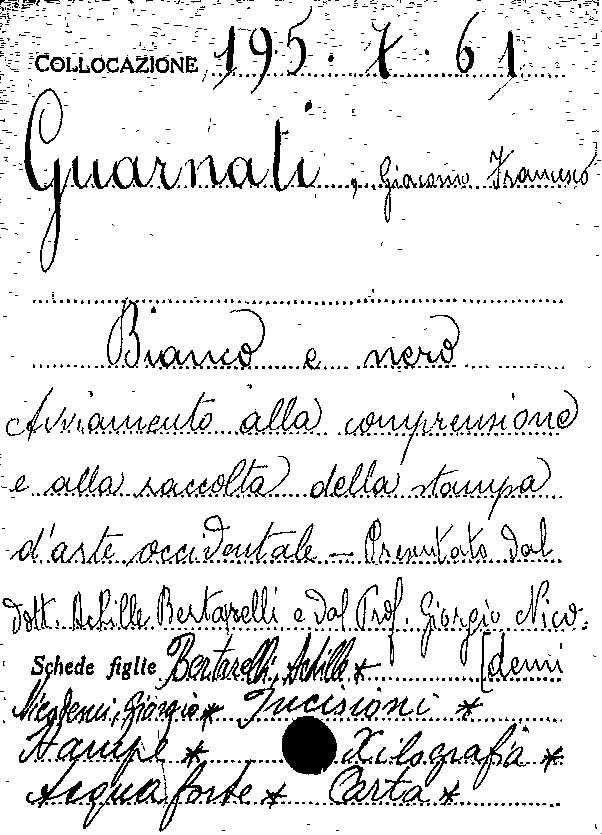 COLLOCAZIONE 195.7.61
Guarnati, Giacomo Francesco
Bianco e nero
Avviamento alla comprensione
e alla raccolta della stampa
d'arte occidentale – Presentato dal
dott. Achille Bertarelli e dal Prof. Giorgio Nico-
[demi
Schede figlie Bertarelli, Achille *
Nicodemi, Giorgio * Incisioni *
Stampe * Xilografia *
Acqua forte * Carta *